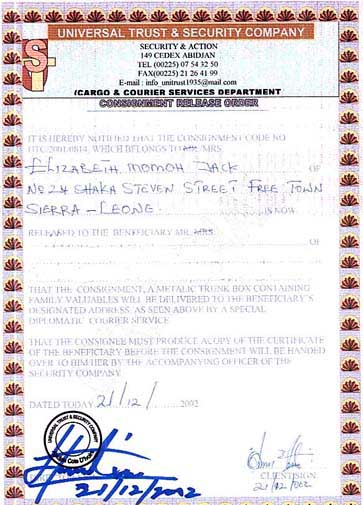 UNIVERSAL TRUST & SECURITY COMPANY
SECURITY & ACTION
149 CEDEX ABIDJAN
TEL (00225) 07 54 32 50
FAX(00225) 21 26 41 99
E-mail : info unitrust1935@mail.com
(CARGO & COURIER SERVICES DEPARTMENT
CONSIGNMENT RELEASE ORDER
IT IS HEREBY NOTIFIED THAT THE CONSIGNMENT CODE NO
WHICH BELONGS TO MR/MRS
ELIZABETH MOMOH JACK OF
No 24 SHAKA STEVEN STREET FREE TOWN
SIERRA - LEONE. IS NOW
RELEASED TO THE BENEFICIARY MR. MRS
OF
THAT THE CONSIGNMENT, A METALIC TRUNK BOX CONTAINING
FAMILY VALUABLES WILL BE DELIVERED TO THE BENEFICIARY'S
DESIGNATED ADDRESS, AS SEEN ABOVE BY A SPECIAL
DIPLOMATIC COURIER SERVICE
THAT THE CONSIGNEE MUST PRODUCE A COPY OF THE CERTIFICATE
OF THE BENEFICIARY BEFORE THE CONSIGNMENT WILL BE HANDED
OVER TO HIM/HER BY THE ACCOMPANYING OFFICER OF THE
SECURITY COMPANY.
DATED TODAY 21/12/ 2002
UNIVERSAL TRUST & SECURITY COMPANY
21/12/2002
CLIENT SIGN
21/12/002